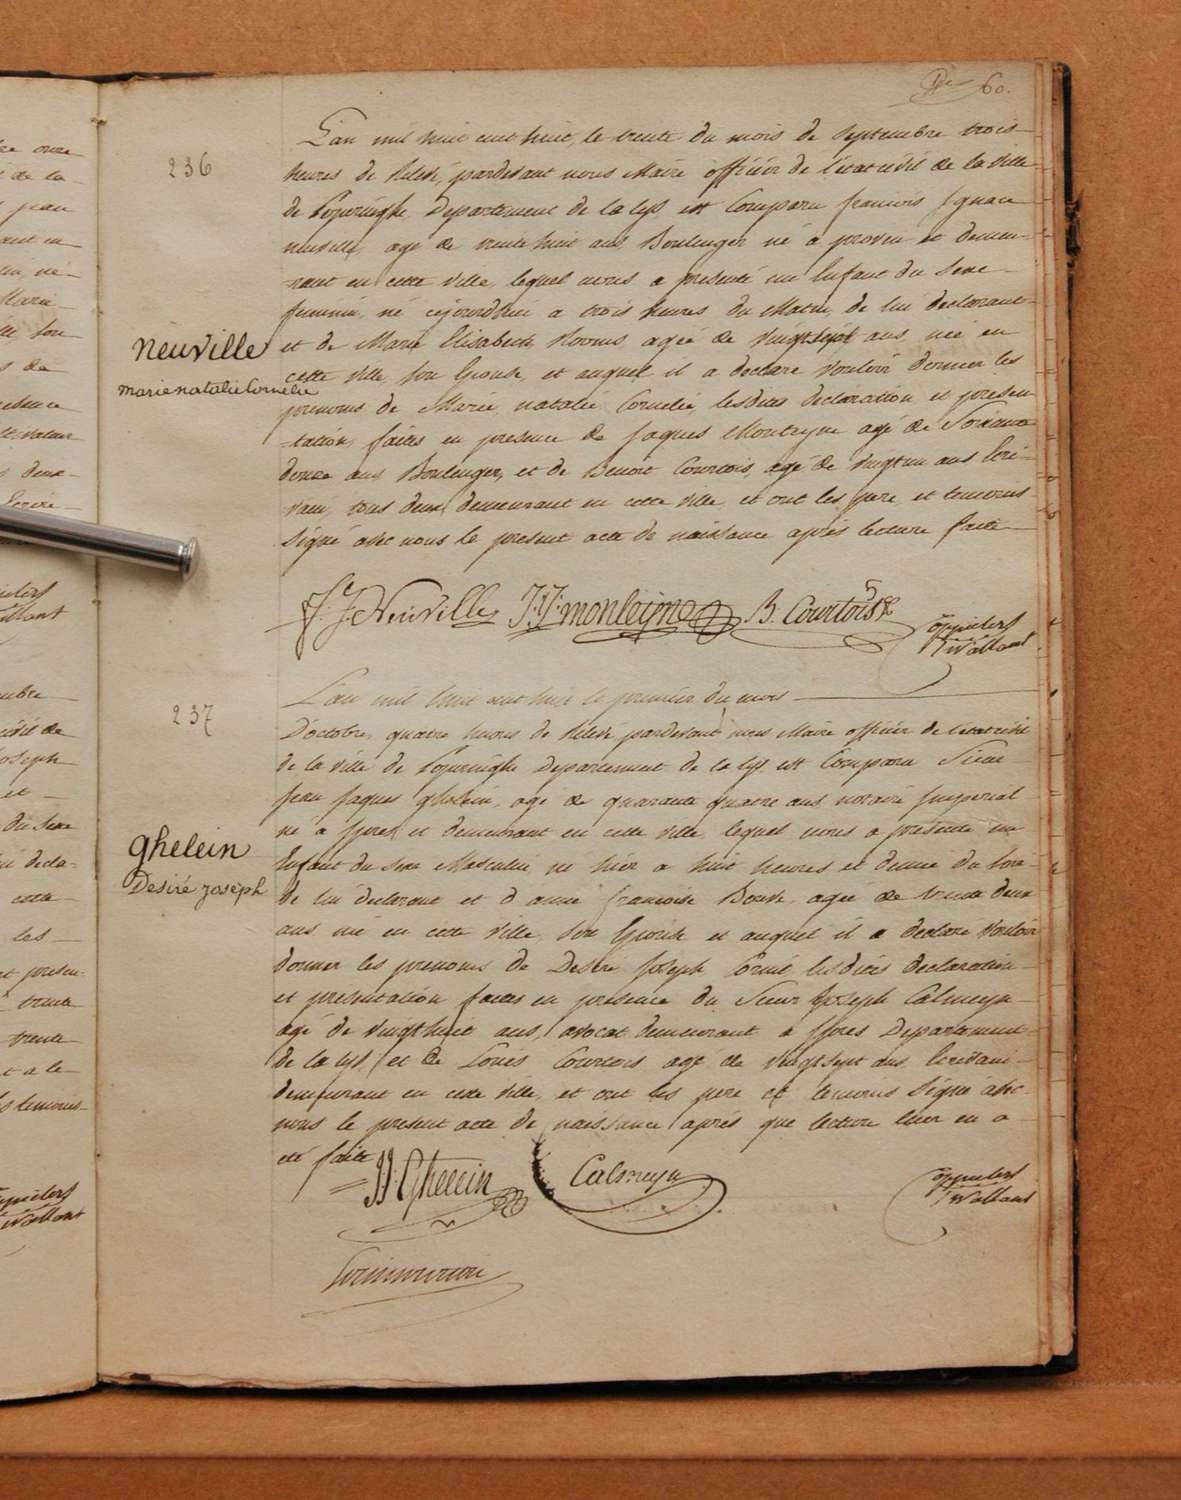 60.
236
L'an mil huit cent huit, le trente du mois de Septembre trois
heures de Relevé, pardevant nous Maire officier de l'état civil de la ville
de Poperinghe, Departement de la Lys est Comparu francois Ignace
neuville, agé de trente huit ans, Boulenger né a proven et demeu-
-rant en cette ville, lequel nous a presenté un Enfant du Sexe
feminin, né cejourdhui a trois heures du Matin, de lui declarant
et de Marie Elisabeth agée de Vingtsept ans, née en
Neuville
cette ville, son Epouse, et auquel il a declaré vouloir donner les
marie natalie Cornelie
prenoms de Marie natalie Cornelie, lesdites declaration et presen
-tation, faites en presence de Jaques Monteyne agé de Soixante
douze ans Boulenger, et de Benoit Courtois, agé de Vingtun ans Ecri-
vain, tous deux demeurant en cette ville, et ont les pere et temoins
Signé avec nous le present acte de naissance après lecture faite
f. J. Neuville J: J: monteijne B. Courtois
237
L'an mil huit cent huit le premier du mois
D'octobre, quatre heures de Relevé pardevant nous Maire officier de l'état civil
de la ville de Poperinghe Departement de la Lys est Comparu Sieur
jean jaques ghelein, agé de quarante quatre ans notaire Imperial
né a Ypres, et demeurant en cette ville, lequel nous a presenté un
ghelein
Enfant du sexe Masculin, né hier a huit heures et demie du Soir
Desiré joseph
de lui declarant et d'anne francoise agée de trente deux
ans née en cette ville, son Epouse et auquel il a declaré vouloir
donner les prenoms de Desiré Joseph lesdites declaration
et presentation faites en presence du Sieur Joseph Calmeyn
agé de Vingthuit ans, avocat demeurant a Ypres Departement
de la Lys, et de Louis Courtois agé de vingtsept ans Ecrivain
demeurant en cette ville, et ont les pere et temoins Signé avec
nous le present acte de naissance après que lecture leur en a
eté faite
JJ. Ghelein Calmeyn